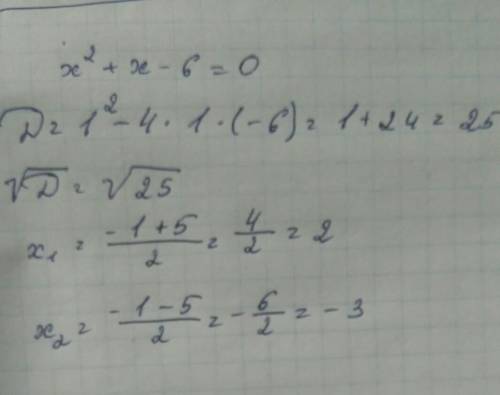 x² + x - 6 = 0
D = 1² - 4 · 1 · (-6) = 1 + 24 = 25
√D = √25
x₁ = (-1 + 5)/2 = 4/2 = 2
x₂ = (-1 - 5)/2 = -6/2 = -3